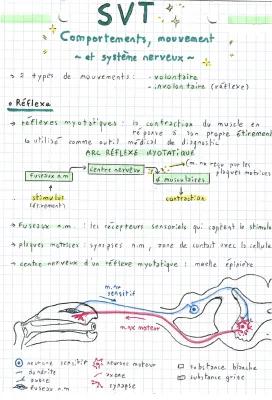 SVT
Comportements, mouvement
~ et système nerveux ~
→ 2 types de mouvements : - volontaire
- involontaire (réflexe)
• Réflexe
→ réflexes myotatiques : la contraction du muscle en
réponse à son propre étirement
↳ utilisé comme outil médical de diagnostic
ARC RÉFLEXE MYOTATIQUE
centre nerveux
(m. nx reçu par les
plaques motrices
fuseaux n.m
musculaires
stimulus
(étirement)
contraction
→ Fuseaux n.m. : les récepteurs sensoriels qui captent le stimulus
→ plaques motrices : synapses n.m, zone de contact avec la cellule
→ centre nerveux d'un réflexe myotatique : moelle épinière
m. nx
sensitif
m. nx moteur
neurone sensitif
neurone moteur
substance blanche
dendrite
axone
substance grise
axone
synapse
fuseau n.m